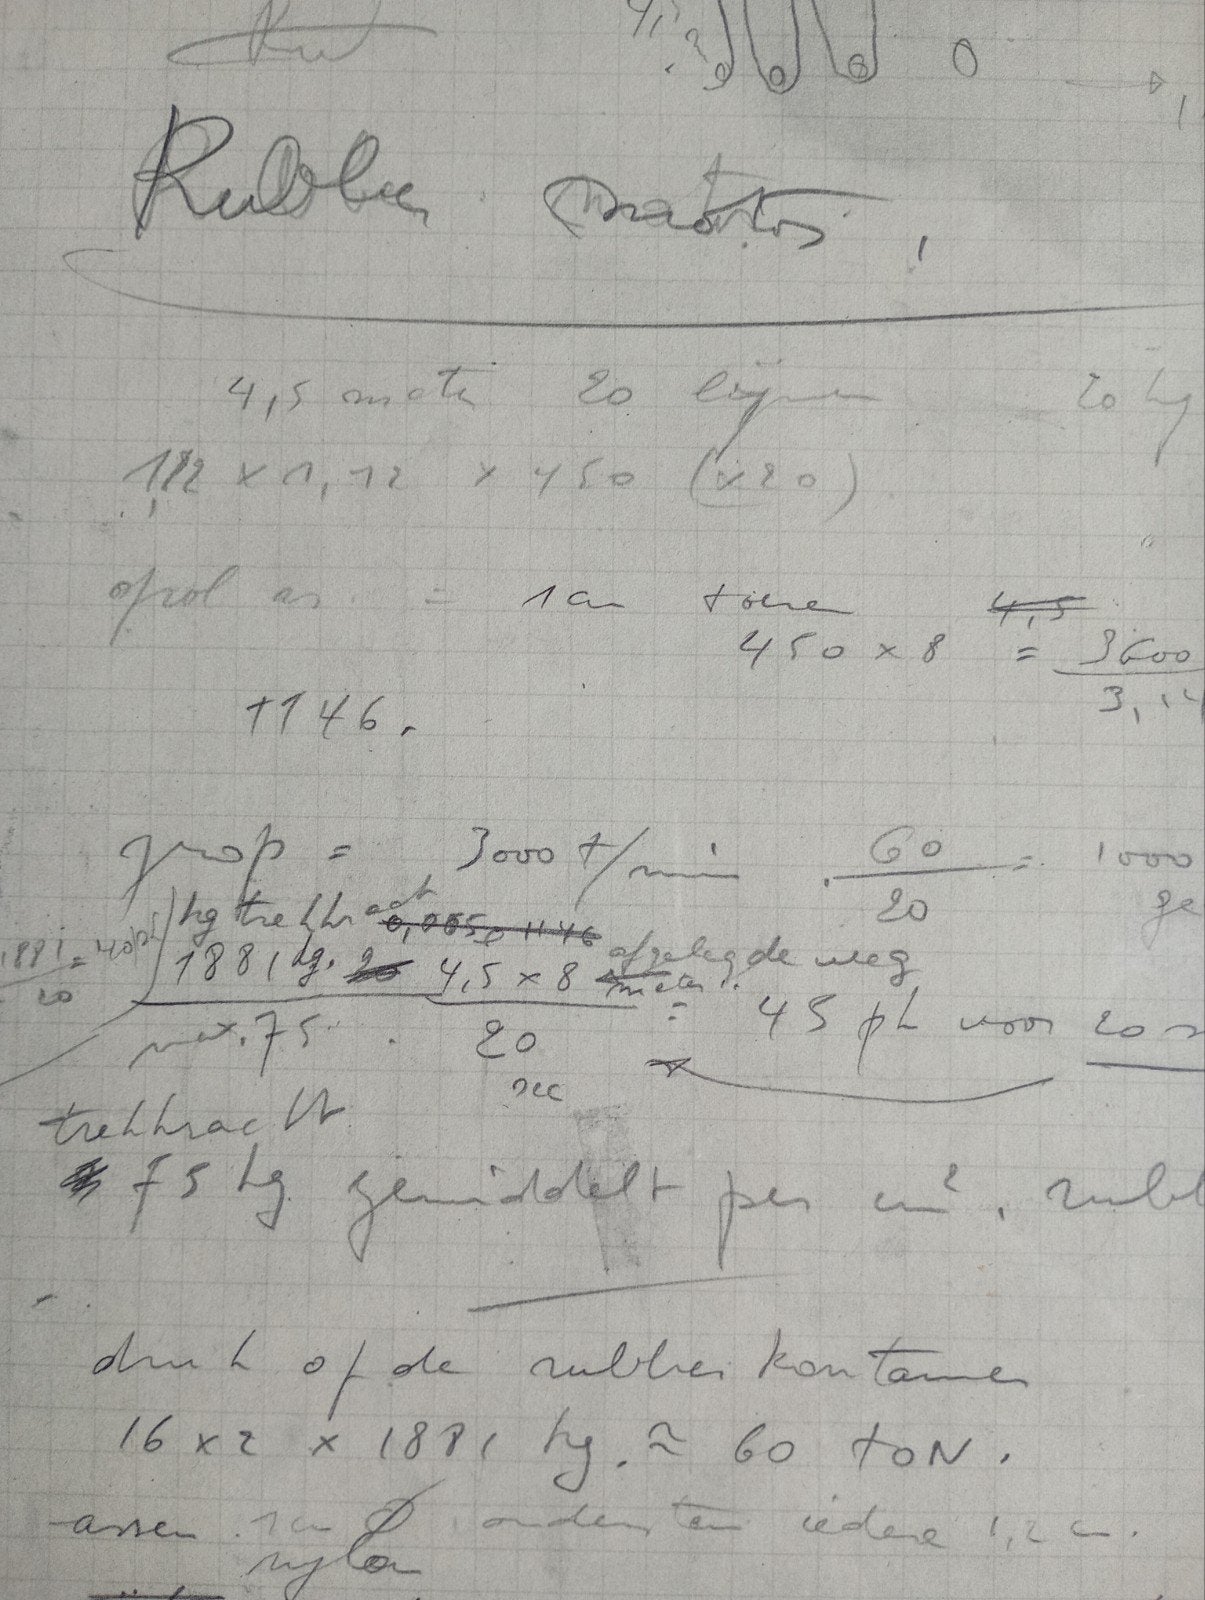 Rubber
4,5 meter 20 lijnen 20 kg
1,12 x 1,12 x 450 (x20)
oprol as = 1 cm toeren 4,5
450 x 8 = 3600
3,14
1146.
prop = 3000 t/min. 60 = 1000
20
kg trekkracht 0,0 1146
1881 = 40 pk 1881 kg. 20 4,5 x 8 meter. afgelegde weg
20 75 . 20 = 45 pk voor 20 s
sec
trekkracht
75 kg gemiddelt per cm². rubb
druk op de rubber kontainer
16 x 2 x 1881 kg. ≈ 60 TON.
assen 1 cm Ø ondersten iedere 1,2 cm.
nylon